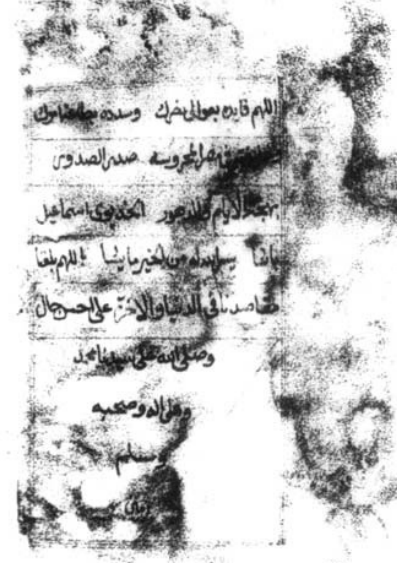 اللهم فايده بعوالى نصرك وسدده
مصر المحروسه صدر الصدور
بهجة الايام والدهور الخديوى اسماعيل
باشا يسر الله له من الخير ما يشا اللهم بلغنا
مقاصدنا فى الدنيا والاخرة على احسن حال
وصلى الله على سيدنا محمد
وعلى اله وصحبه
وسلم